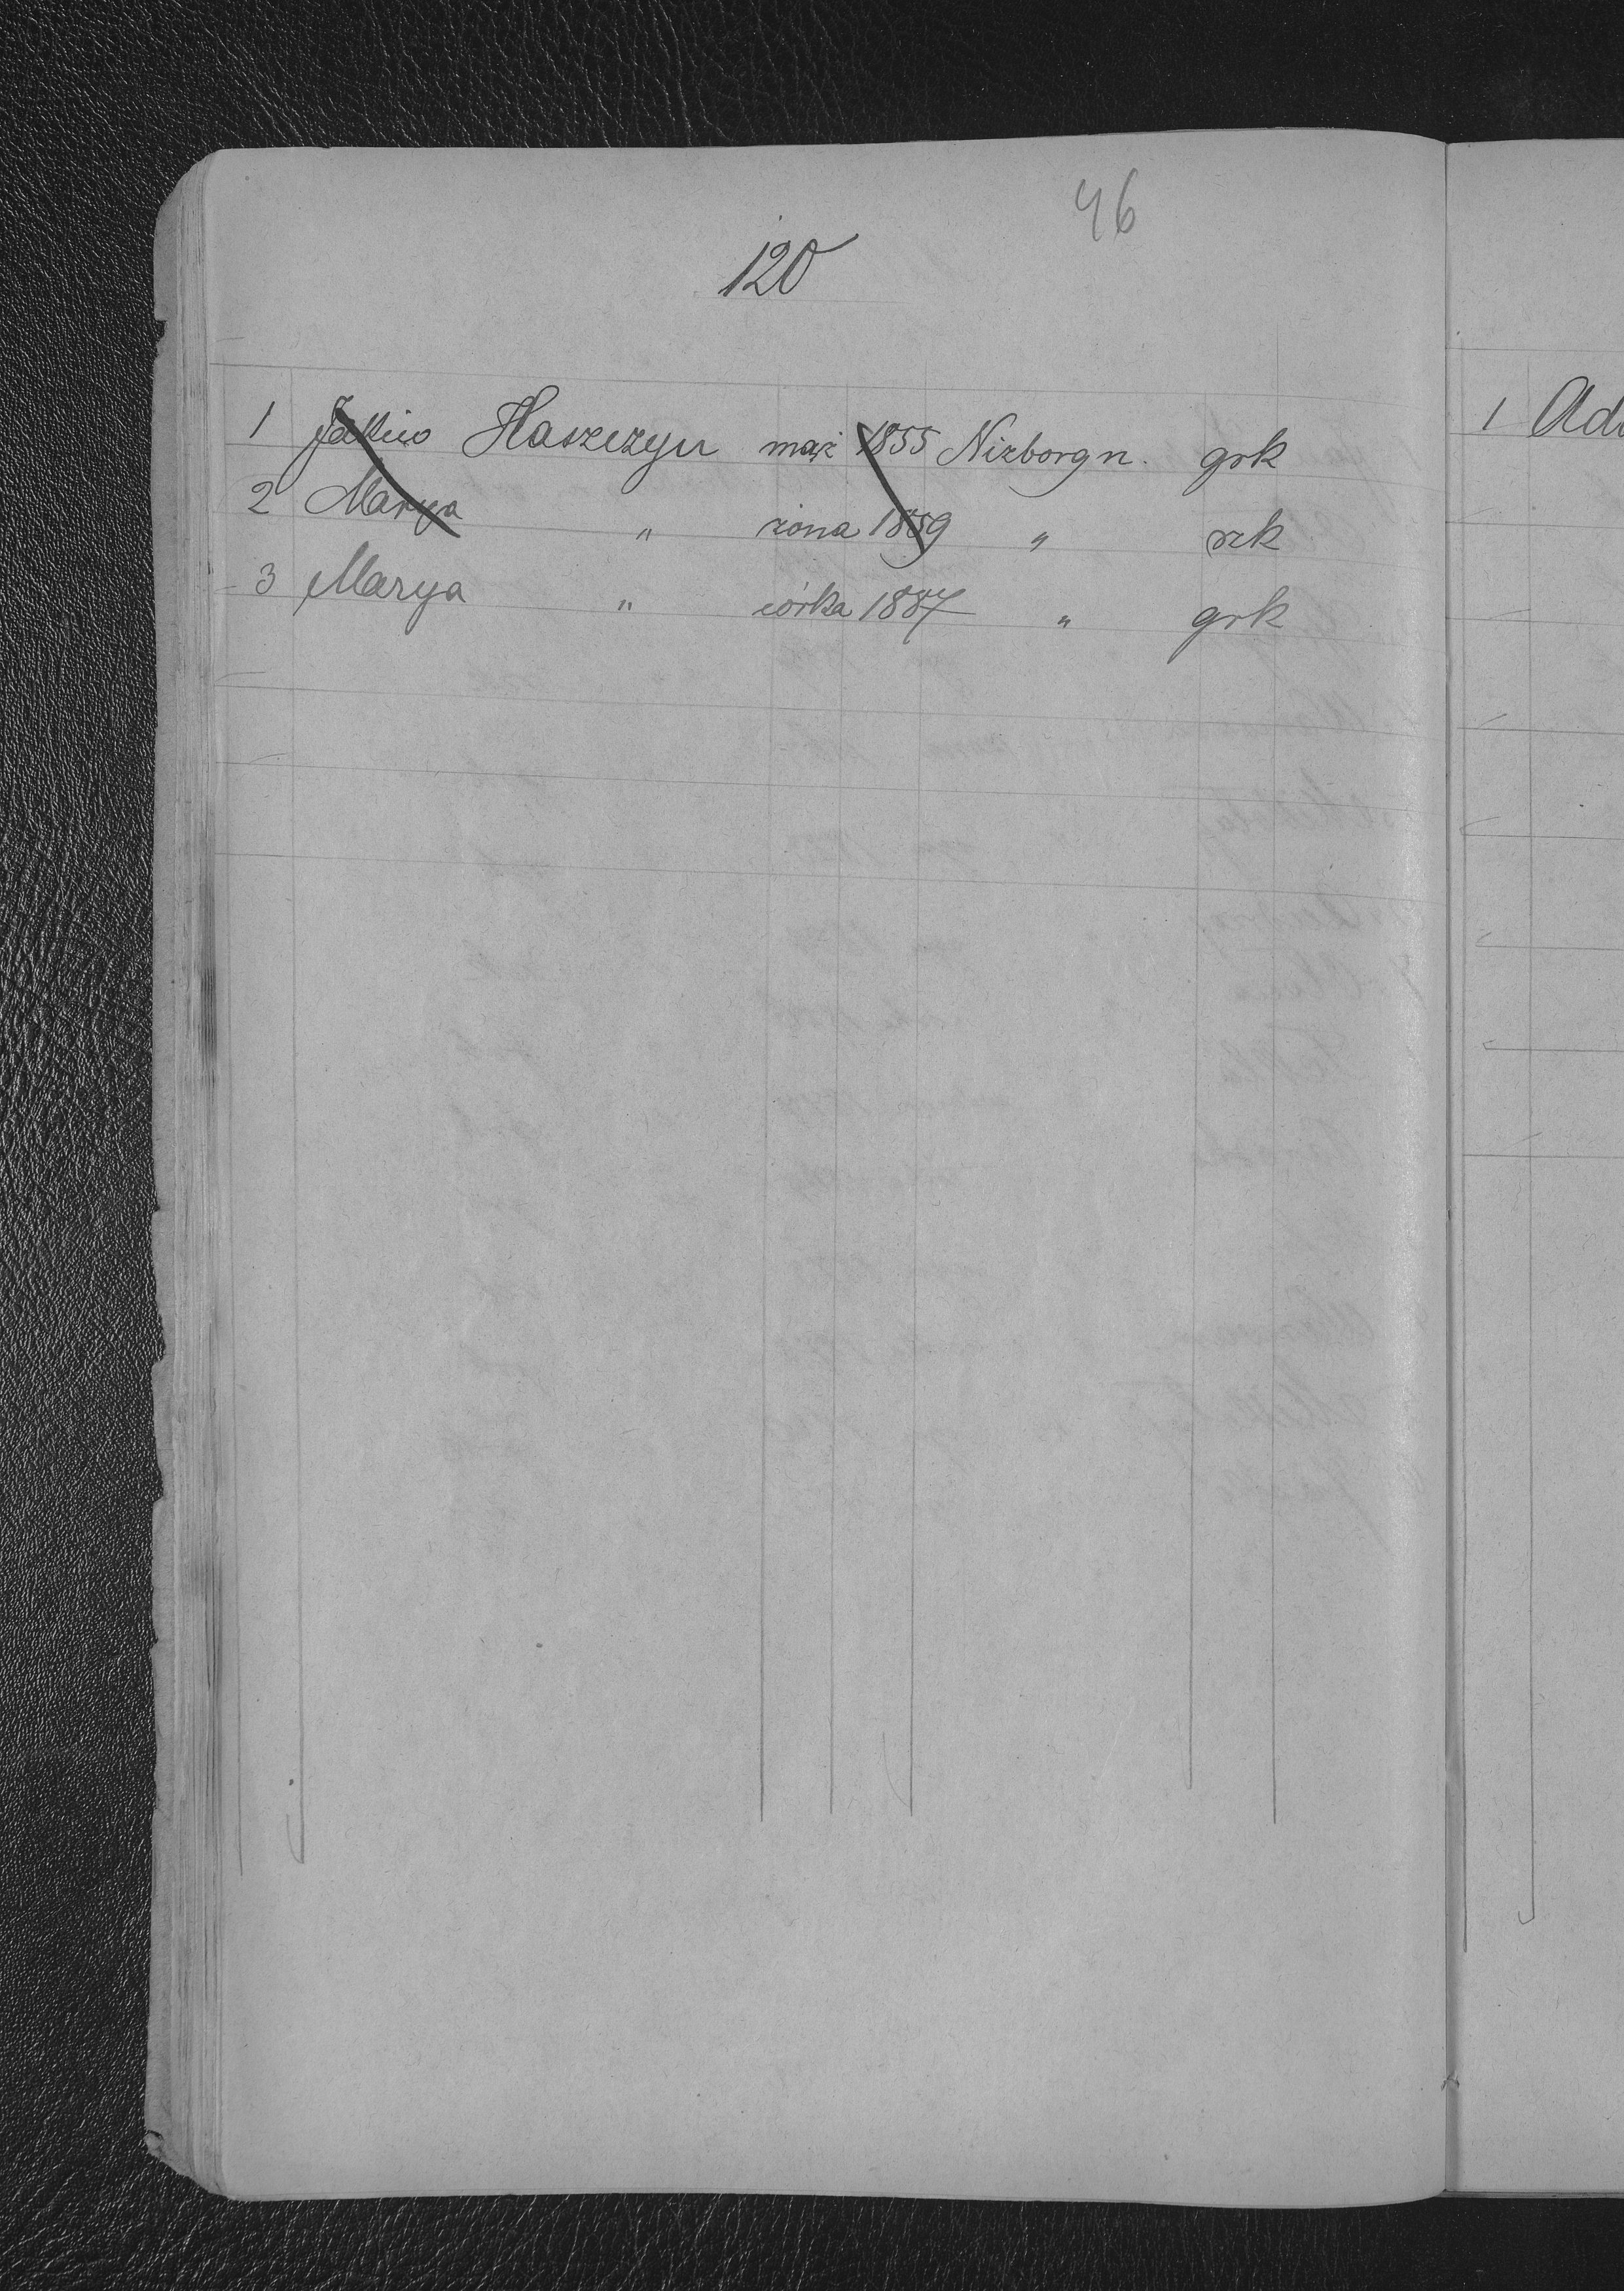 46
120
1 Jaśko Haszczyn mąż 1855 Nizborg n. grk
2 Marya " żona 1859 " rzk
3 Marya " córka 1887 " grk
1 Ad